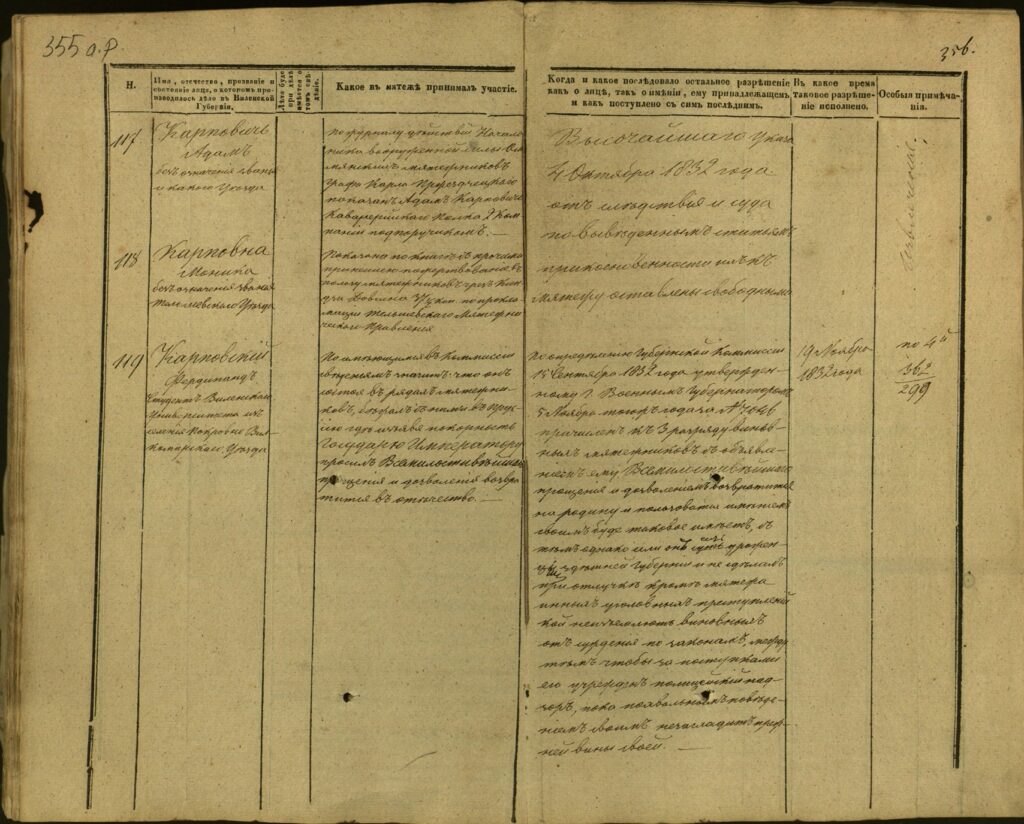 355 а.р.
356.
Н.
Имя, отечество, прозвание и
состояние лица, о котомъ про-
изводилось дѣло въ Виленской
Губерніи.
Какое въ матежѣ принималъ участіе.
Когда и какое послѣдовало остальное разрѣшеніе
какъ о лицѣ, такъ о имѣніи, ему принадлежащемъ
и какъ поступлено съ симъ послѣднимъ.
Въ какое время
таковое разрѣше-
ніе исполнено.
Особыя примѣча-
нія.
117
Карповичъ
Адамъ
безъ означенія званія
и какого Уѣзда
по журналу дѣйствій Началь-
ника вооруженной силы
мятежниковъ
Графа Карла Пржездецкаго
показанъ Адамъ Карповичъ
Кавалерійскаго Полка 2 Ком-
паніи подпоручикомъ. —
Высочайшаго Указа
4 Октября 1832 года
отъ слѣдствія и суда
по выведеннымъ статьямъ
прикосновенности ихъ къ
мятежу оставлены свободными
118
Карповна
Моника
безъ означенія званія
Тельшевскаго Уѣзда
Показана по книгѣ въ прочихъ
по пожертвованію въ
пользу мятежниковъ чрезъ Ксен-
дза Довкина по прокла-
маціи Тельшевскаго Мятежни-
ческаго Правленія
119
Карповскій
Фердинандъ
Студентъ Виленскаго
Университета изъ
имѣнія Покровно Вил-
комирскаго Уѣзда
По имѣющимся въ Коммиссіи
свѣденіямъ значитъ что онъ
состоя въ рядахъ мятежни-
ковъ, бѣжалъ съ ними въ Прус-
сію гдѣ изъявя покорность
Государю Императору
просилъ Всемилостивѣйшаго
прощенія и дозволенія возвра-
титься въ отечество. —
По опредѣленію Губернской Коммиссіи
15 Сентября 1832 года утвержден-
ному Г. Военнымъ Губернаторомъ
5 Ноября того года за №
причисленъ къ 3 разряду винов-
ныхъ мятежниковъ съ объявле-
ніемъ ему Всемилостивѣйшаго
прощенія и дозволеніемъ возвратится
на родину и пользоватся имѣніемъ
своимъ буде таковое имѣетъ, съ
тѣмъ однако или онъ есть урожен-
здѣшней Губерніи и не сдѣлалъ
при отлучкѣ кромѣ мятежа
иныхъ уголовныхъ преступленій
кои неизъемлютъ виновныхъ
отъ сужденія по законамъ, между
тѣмъ чтобы за поступками
его учрежденъ полицейскій над-
зоръ, пока похвальнымъ поведе-
ніемъ своимъ незагладитъ преж-
ней вины своей. —
19 Ноября
1832 года
по 4й
362
299